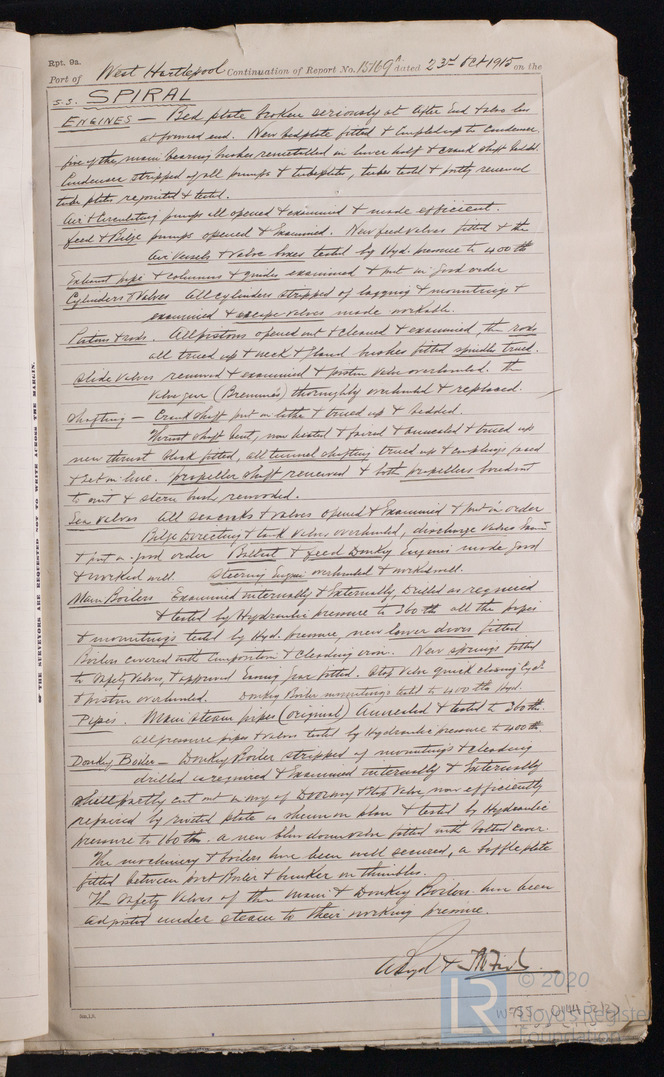 Rpt. 9a.
Port of West Hartlepool Continuation of Report No. 15169 dated 23rd Oct 1915 on the
S.S. SPIRAL
ENGINES — Bed plate broken seriously at after End & also
at forward end. New bedplate fitted & coupled up to Condenser.
five of the main bearing bushes remetalled in lower half & crank shaft bedded.
Condenser stripped of all pumps & tubeplate, tubes tested & partly renewed
tube plate rejointed & tested.
Air & Circulating pumps all opened & examined & made efficient.
Feed & Bilge pumps opened & Examined. New feed valves fitted & the
air vessels & valve boxes tested by Hyd. pressure to 400 lbs
Exhaust pipe & columns & guides examined & put in good order
Cylinders & Valves All cylinders stripped of lagging & mountings &
examined & escape valves made workable.
Pistons & rods. All pistons opened out & cleaned & examined, the rods
all trued up & neck & gland bushes fitted spindles trued.
Slide Valves removed & examined & piston valve overhauled. The
Valve gear (Bremmes) thoroughly overhauled & replaced.
Shafting — Crank shaft put in lathe & trued up & bedded.
Thrust shaft bent, now heated & faired & annealed & trued up
new thrust block fitted, all tunnel shafting trued up & couplings faced
& set in line. propeller shaft renewed & both propellers bored out
to suit & stern bush rewooded.
Sea valves All seacocks & valves opened & Examined & put in order
Bilge Directing & tank valves overhauled, discharge valves
& put in good order Ballast & feed Donkey Engines made good
& worked well. Steering Engine overhauled & worked well.
Main Boilers Examined internally & Externally, Drilled as required
& tested by Hydraulic pressure to 360 lbs all the pipes
& mountings tested by Hyd. pressure, new lower doors fitted
Boilers covered with Composition & Cleading iron. New springs fitted
to Safety Valves, & approved Easing Gear fitted. Stop Valve quick closing Cyl.
& piston overhauled. Donkey Boiler mountings tested to 400 lbs Hyd.
Pipes. Main steam pipes (original) Annealed & tested to 360 lbs.
All pressure pipes & valves tested by Hydraulic pressure to 400 lbs
Donkey Boiler — Donkey Boiler stripped of mountings & cleading
drilled as required & Examined internally & Externally
Shell partly cut out in way of Doorway & Stop Valve now efficiently
repaired by riveted plate as shewn on plan & tested by Hydraulic
pressure to 160 lbs. a new blow down valve fitted with bolted cover.
The machinery & boilers have been well secured, a baffle plate
fitted between port Boiler & bunker on thimbles.
The Safety Valves of the Main & Donkey Boilers have been
adjusted under steam to their working pressure.
OF THE SURVEYORS ARE REQUESTED NOT TO WRITE ACROSS THE MARGIN.
© 2020
Lloyd's Register
Foundation
LR